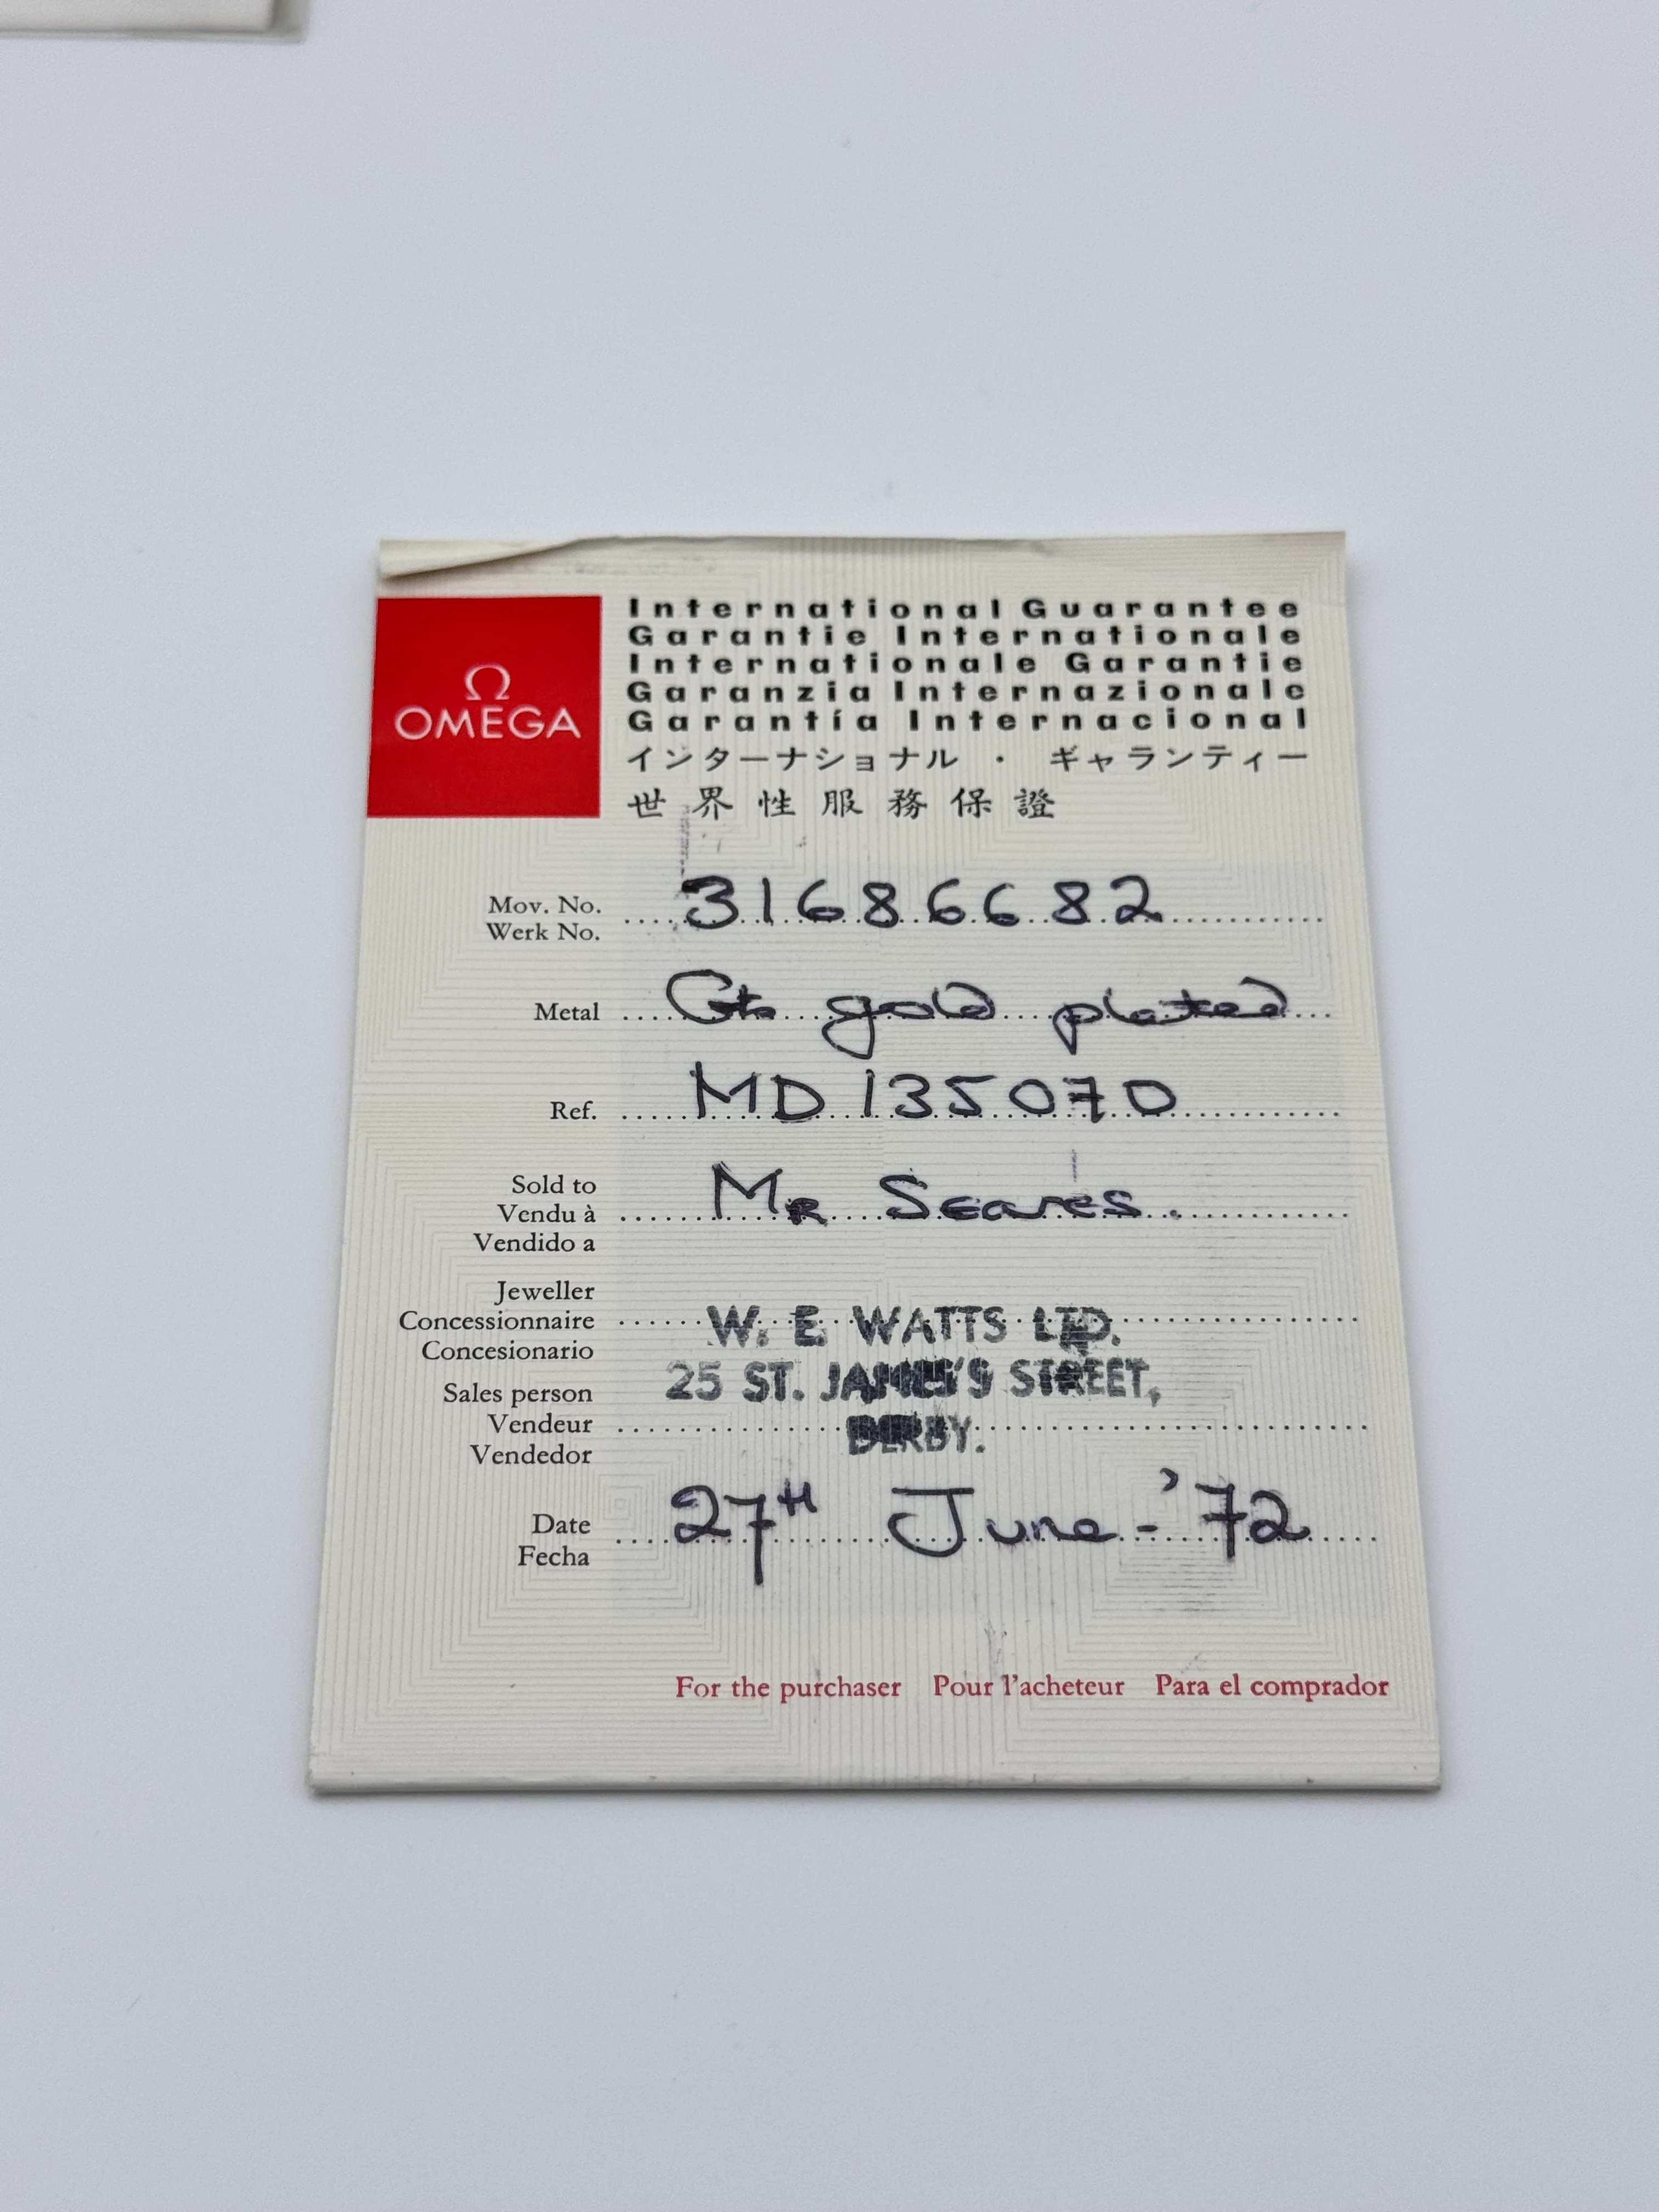 Ω
OMEGA
International Guarantee
Garantie Internationale
Internationale Garantie
Garanzia Internazionale
Garantía Internacional
インターナショナル・ギャランティー
世界性服務保證
Mov. No. 31686682
Werk No.
Metal gold plated
Ref. MD 135070
Sold to
Vendu à MR Seares.
Vendido a
Jeweller
Concessionnaire W. E. WATTS LTD.
Concesionario
25 ST. JAMES'S STREET,
Sales person
Vendeur DERBY.
Vendedor
Date 27TH June - '72
Fecha
For the purchaser Pour l'acheteur Para el comprador